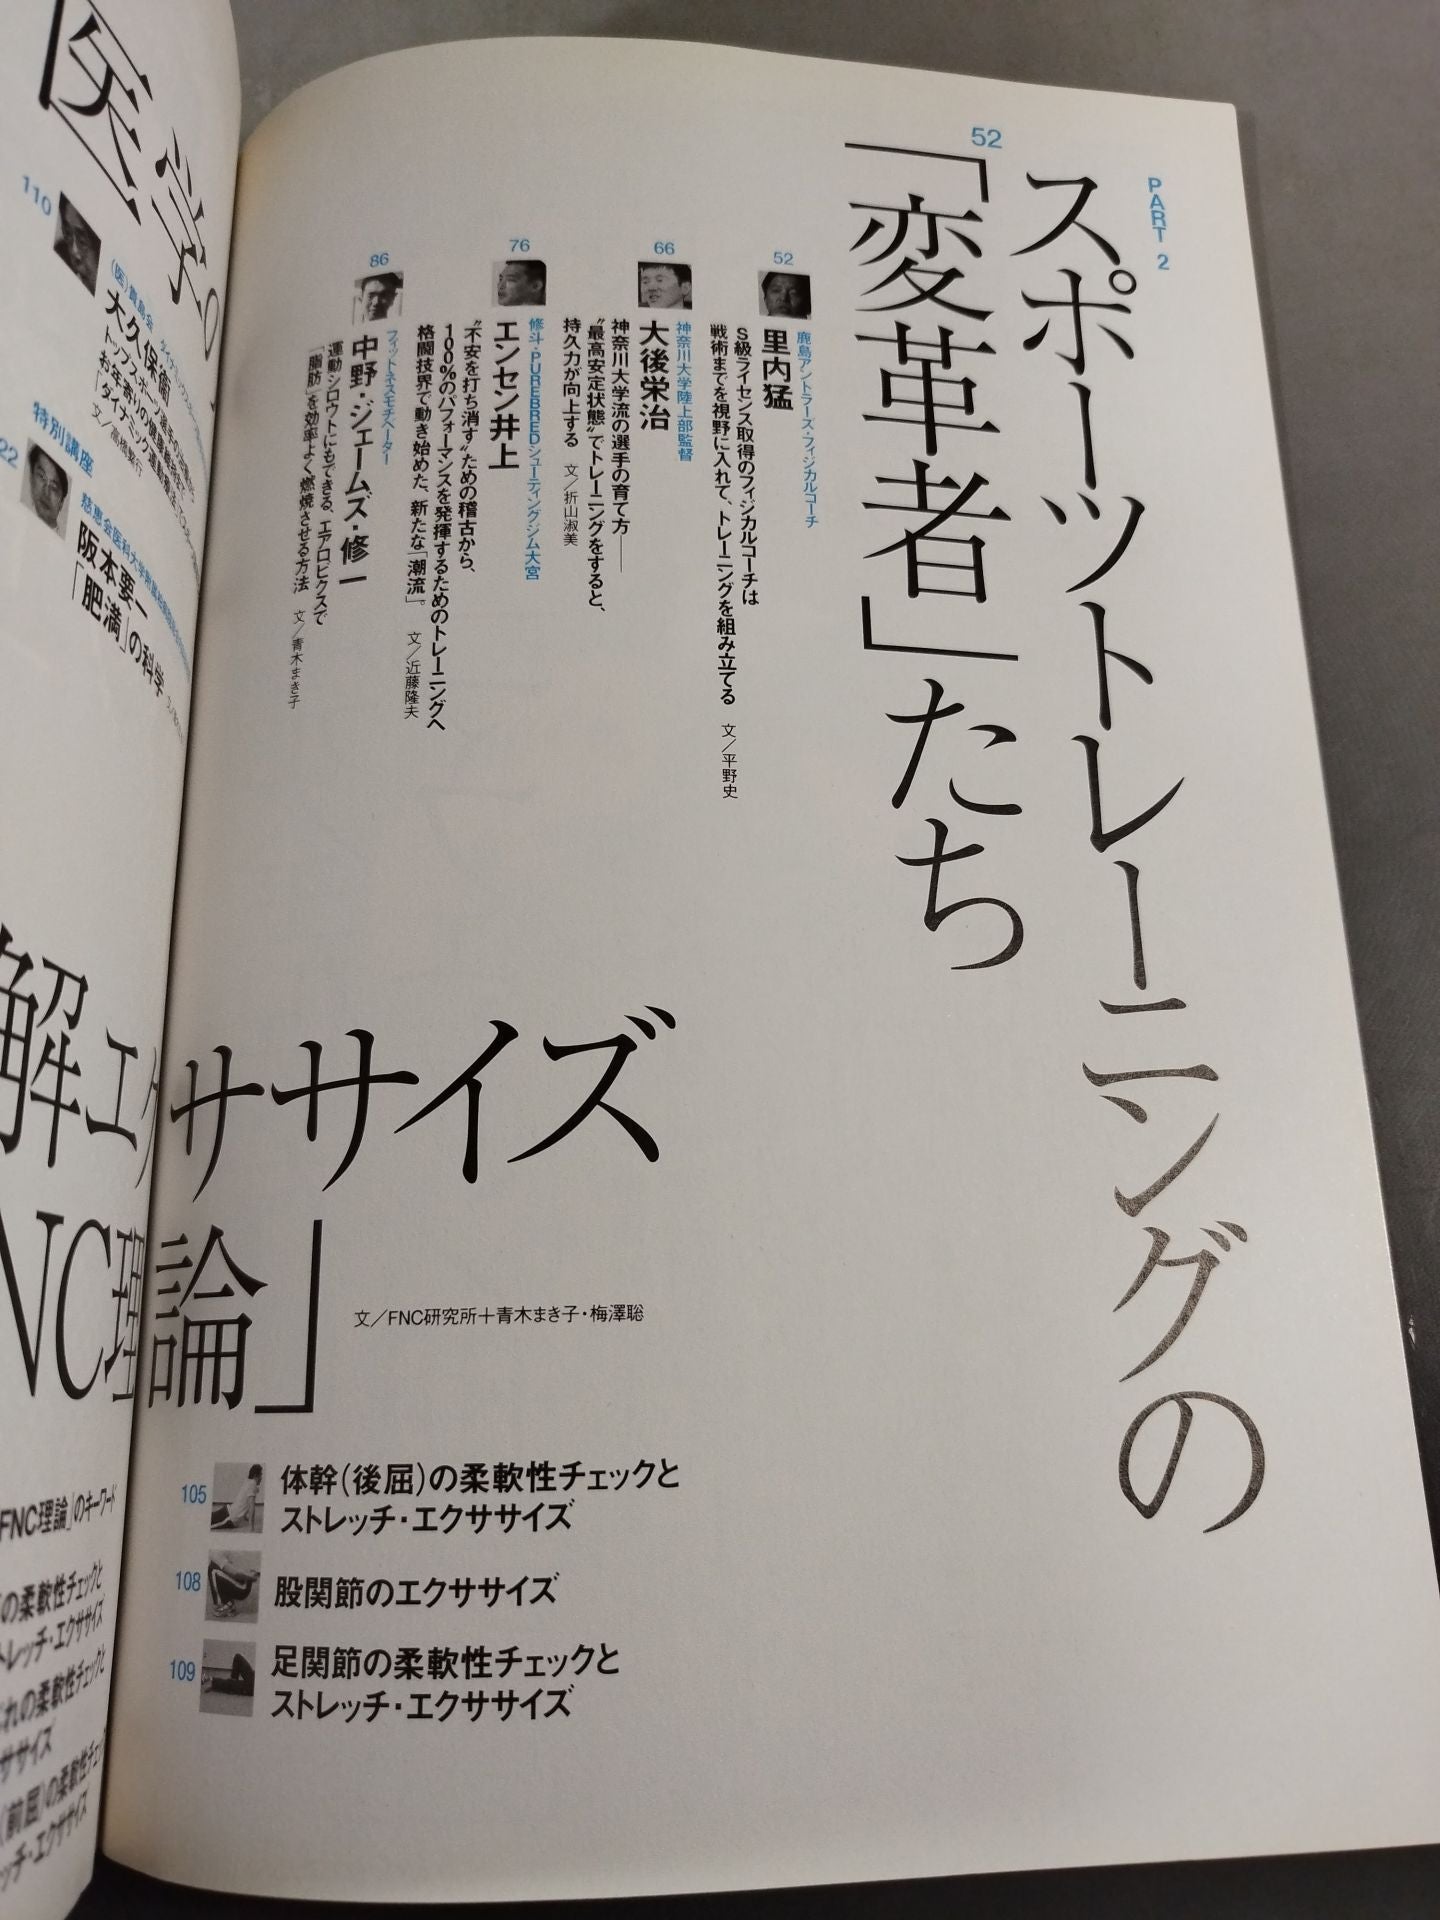 PART 2
スポーツトレーニングの
52
「変革者」たち
52
鹿島アントラーズ・フィジカルコーチ
里内猛
S級ライセンス取得のフィジカルコーチは
戦術までを視野に入れて、トレーニングを組み立てる 文／平野史
66
神奈川大学陸上部監督
大後栄治
神奈川大学流の選手の育て方——
“最高安定状態”でトレーニングをすると、
持久力が向上する 文／折山淑美
76
修斗・PUREBREDシューティングジム大宮
エンセン井上
“不安を打ち消す”ための稽古から、
100%のパフォーマンスを発揮するためのトレーニングへ
格闘技界で動き始めた、新たな「潮流」。 文／近藤隆夫
86
フィットネスモチベーター
中野・ジェームズ・修一
運動シロウトにもできる、エアロビクスで
「脂肪」を効率よく燃焼させる方法 文／青木まき子
医学。
110
(医)貴島会
大久保衞
特別講座
22
阪本要一
「肥満」の科学
解エク
ササイズ
NC理
論」
文／FNC研究所＋青木まき子・梅澤聡
105
体幹(後屈)の柔軟性チェックと
ストレッチ・エクササイズ
108
股関節のエクササイズ
109
足関節の柔軟性チェックと
ストレッチ・エクササイズ
FNC理論」のキーワード
の柔軟性チェックと
トレッチ・エクササイズ
れの柔軟性チェックと
ササイズ
(前屈)の柔軟性チェッ
ッチ・エクササイズ